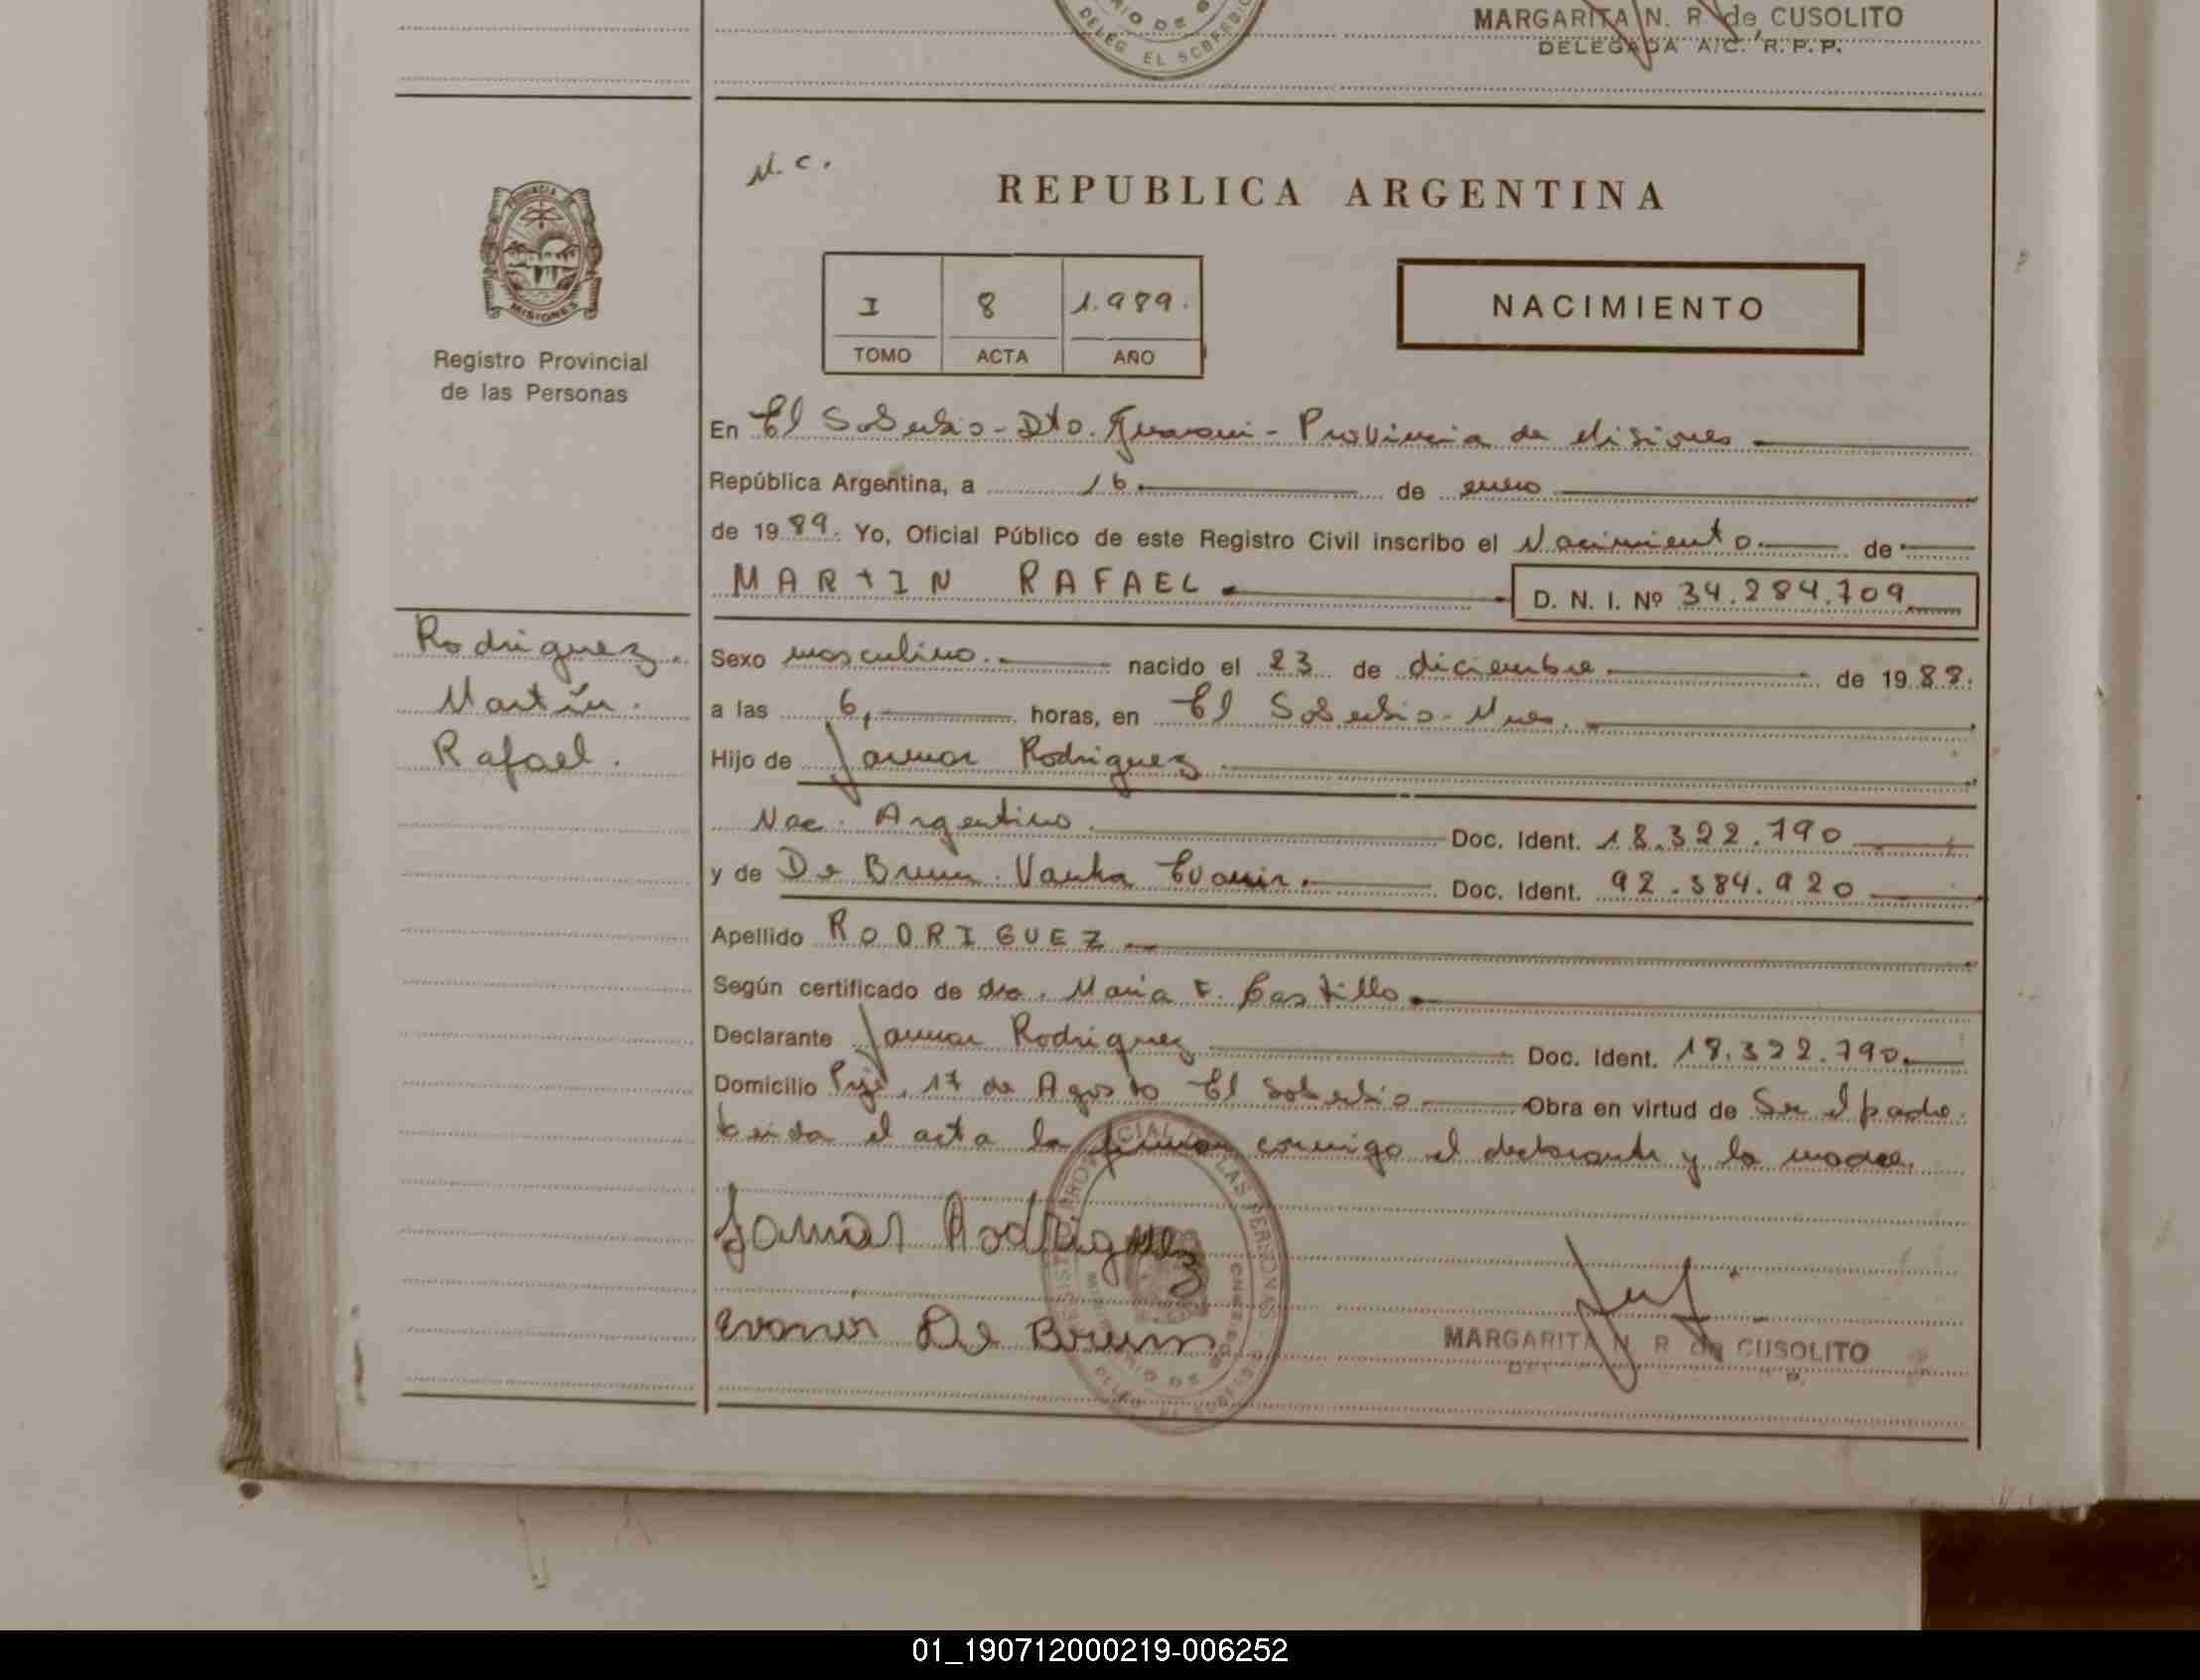 MARGARITA N. R. de CUSOLITO
DELEG EL SOBERBIO
DELEGADA A/C. R. P. P.
N. C.
REPUBLICA ARGENTINA
PROVINCIA
MISIONES
Registro Provincial
de las Personas
I 8 1.989.
TOMO ACTA AÑO
NACIMIENTO
En El Soberbio - Dto. Guarani - Provincia de Misiones
República Argentina, a 16 de enero
de 1989. Yo, Oficial Público de este Registro Civil inscribo el Nacimiento de
MARTIN RAFAEL D. N. I. Nº 34.284.709
Rodriguez.
Martín.
Rafael.
Sexo masculino. nacido el 23 de diciembre de 1988.
a las 6, horas, en El Soberbio - Mnes.
Hijo de Jamar Rodriguez
Nac. Argentino. Doc. Ident. 18.322.790
y de De Brum. Evanir. Doc. Ident. 92.384.920
Apellido RODRIGUEZ
Según certificado de dra. Maria F. Castillo
Declarante Jamar Rodriguez Doc. Ident. 18.322.790.
Domicilio Pje. 17 de Agosto El Soberbio Obra en virtud de Ser el padre.
Leida el acta la firman conmigo el declarante y la madre.
Jamar Rodriguez
Evanir De Brum
MARGARITA N. R. de CUSOLITO
01_190712000219-006252